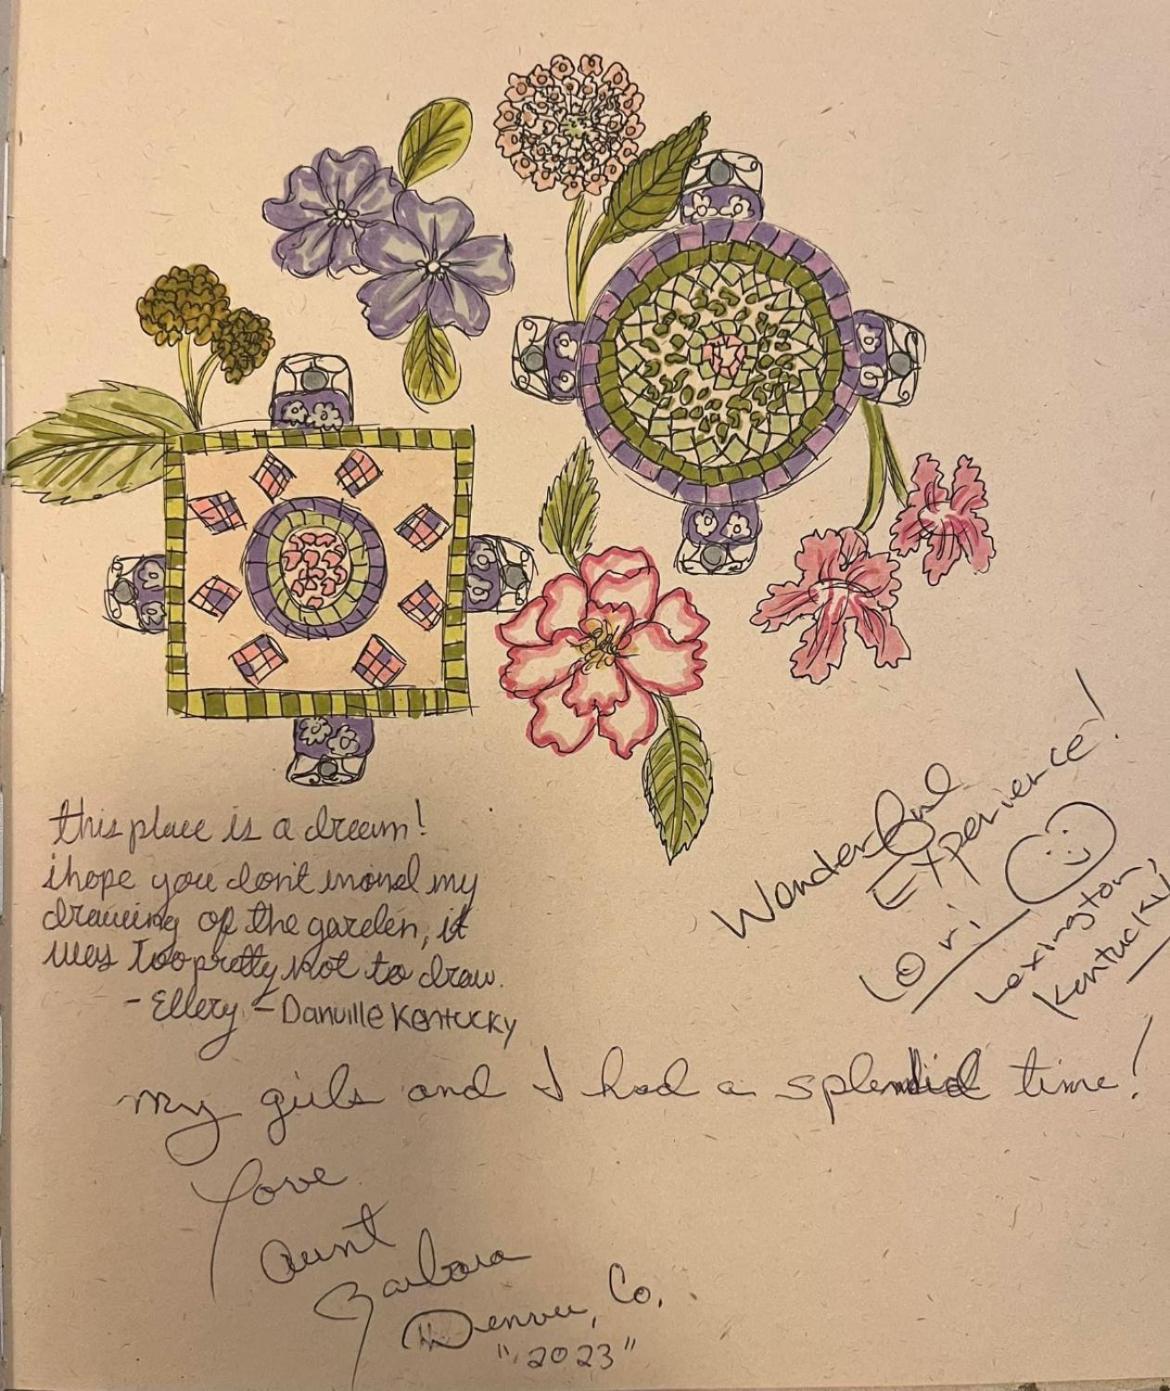 this place is a dream!
i hope you don't mind my
drawing of the garden, it
was too pretty not to draw.
- Ellery - Danville Kentucky
Wonderful
Experience!
Lori
Lexington,
Kentucky
my girls and I had a splendid time!
Love
Aunt
Barbara
Denver, Co.
"2023"